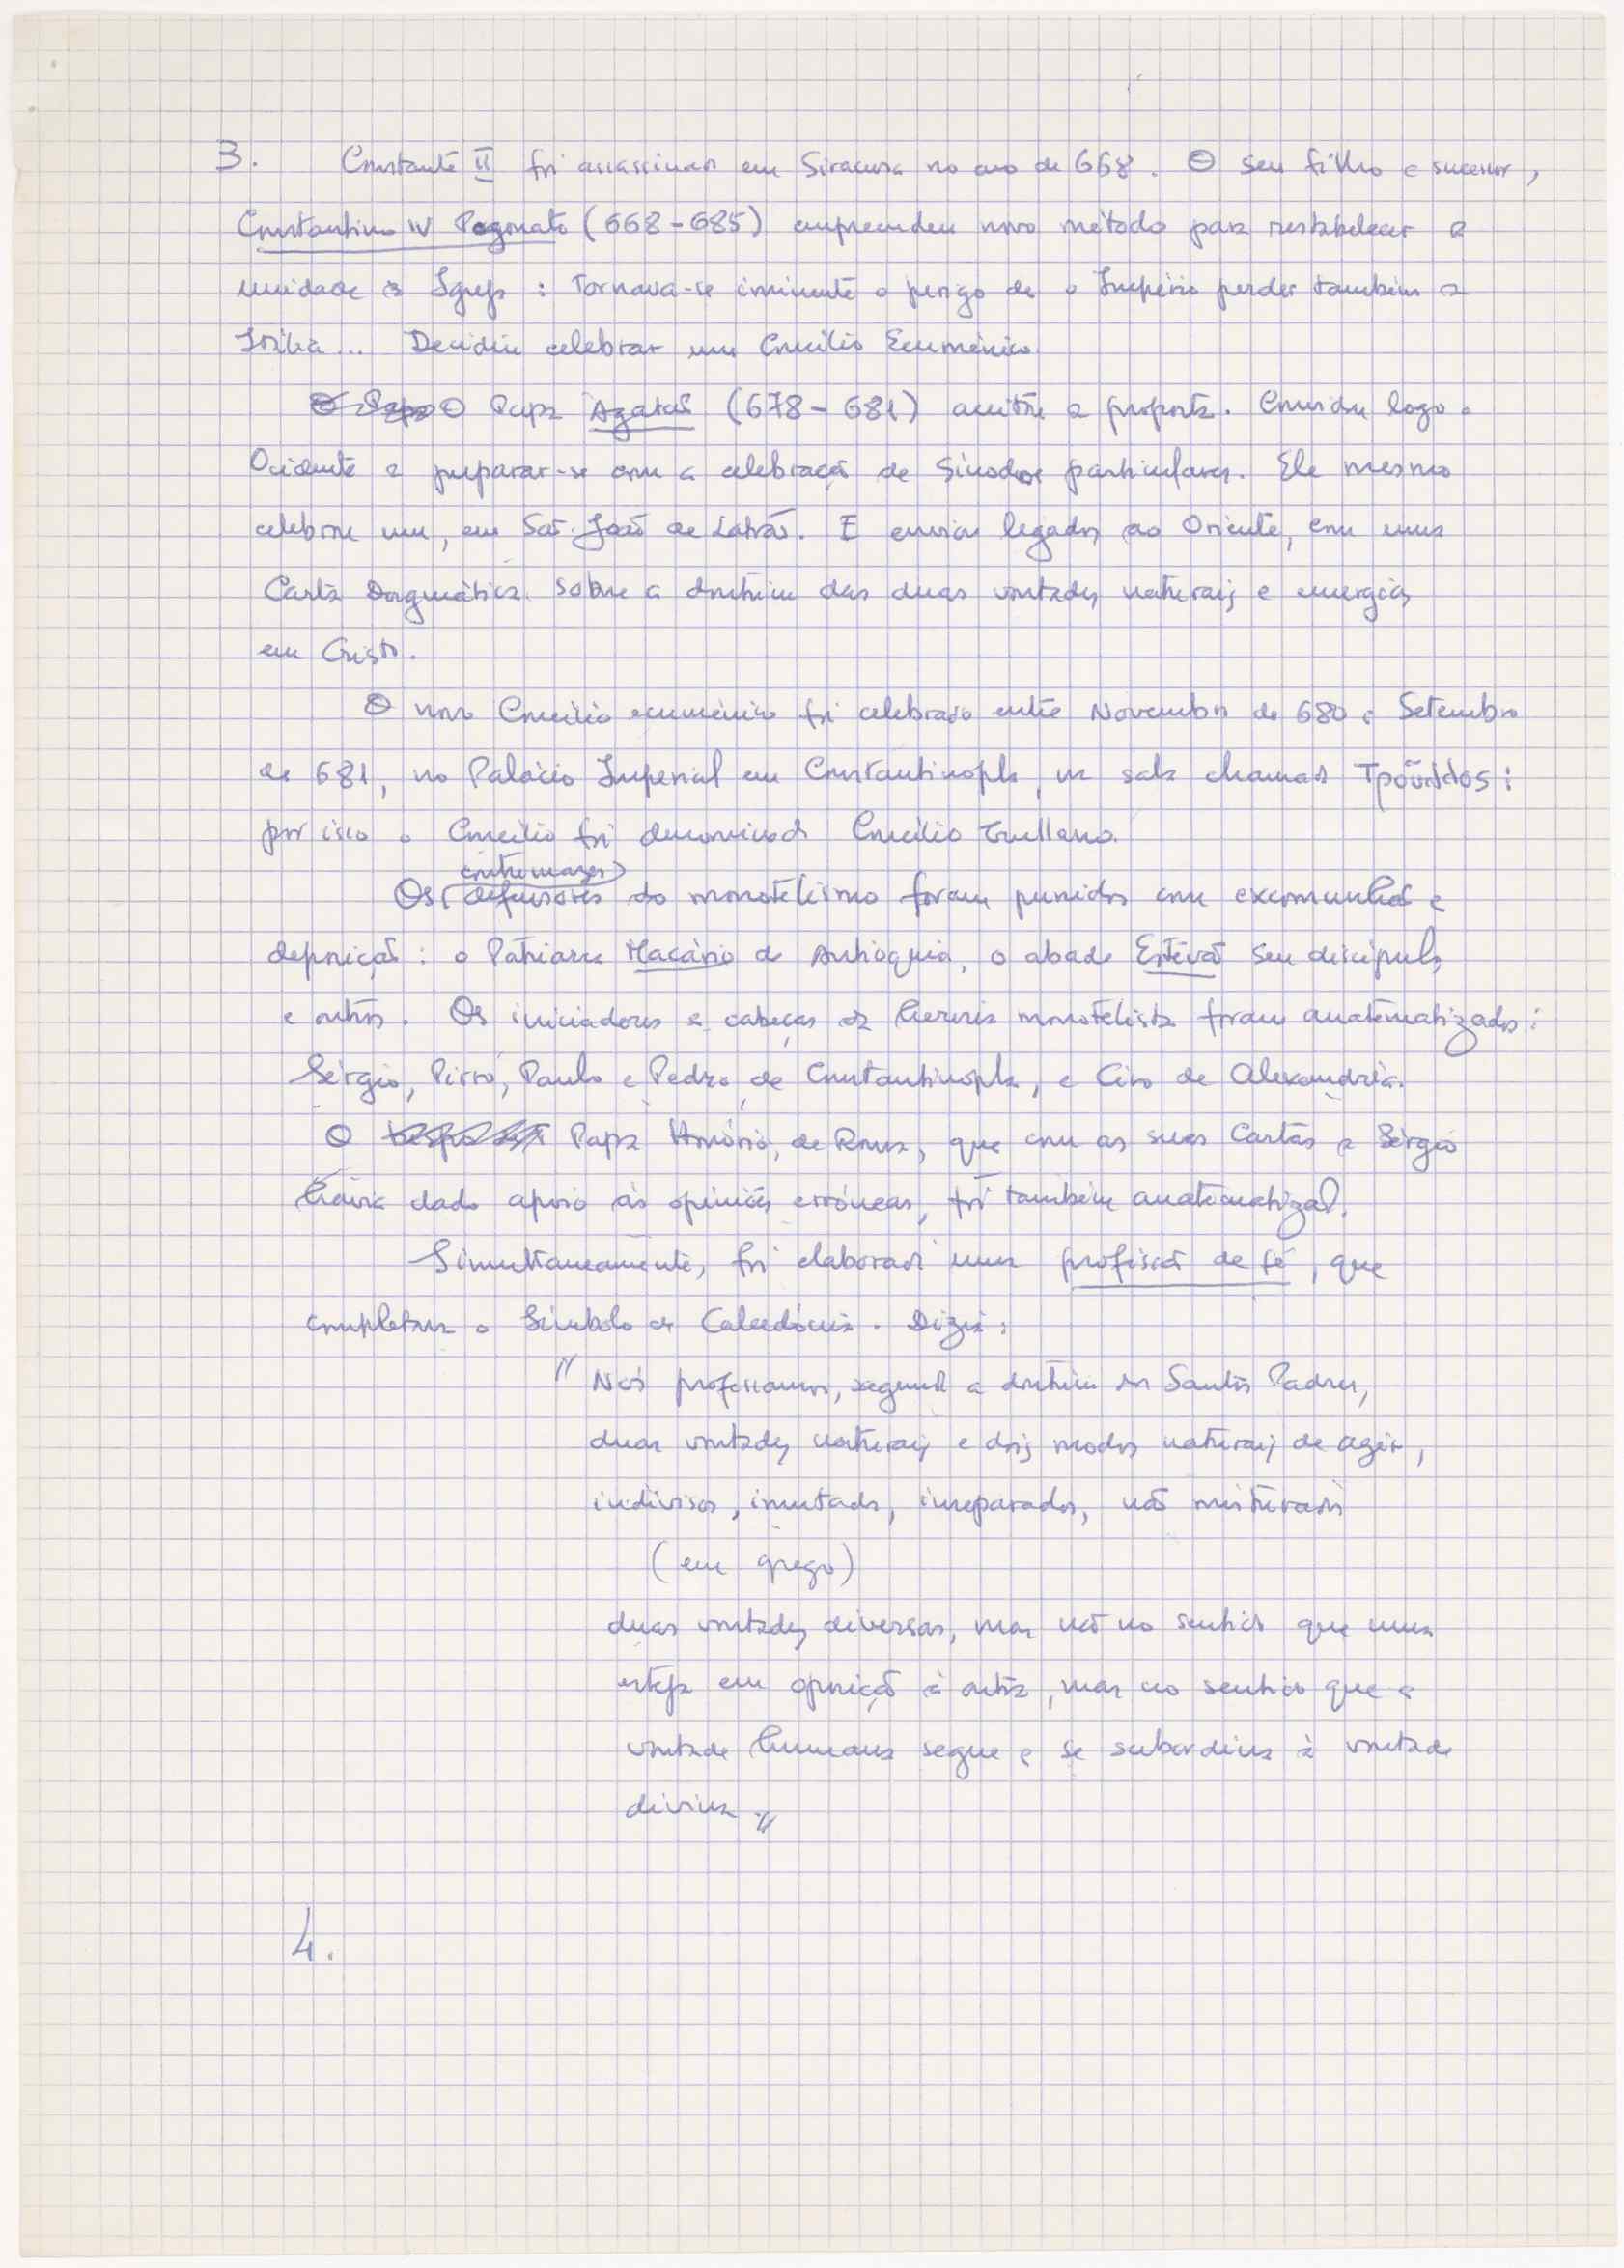 3. Constante II foi assassinado em Siracusa no ano de 668. O seu filho e sucessor,
Constantino IV Pogonato (668-685) empreendeu novo método para restabelecer a
unidade da Igreja : Tornava-se iminente o perigo de o Império perder também a
Itália... Decidiu celebrar um Concílio Ecuménico
O Papa O Papa Agatão (678-681) aceitou a proposta. Convidou logo o
Ocidente a preparar-se com a celebração de Sínodos particulares. Ele mesmo
celebrou um, em São João de Latrão. E enviou legados ao Oriente, com uma
Carta Dogmática sobre a doutrina das duas vontades naturais e energias
em Cristo.
O novo Concílio ecuménico foi celebrado entre Novembro de 680 e Setembro
de 681, no Palácio Imperial em Constantinopla, na sala chamada
por isso o Concílio foi denominado Concílio Trullano.
contumazes
Os defensores do monotelismo foram punidos com excomunhão e
deposição : o Patriarca Macário de Antioquia, o abade Estêvão seu discípulo,
e outros. Os iniciadores e cabeças da heresia monotelista foram anatematizados :
Sérgio, Pirro, Paulo e Pedro, de Constantinopla, e Ciro de Alexandria.
O Papa Honório, de Roma, que com as suas Cartas a Sérgio
havia dado apoio às opiniões erróneas, foi também anatematizado.
Simultaneamente, foi elaborada uma profissão de fé, que
completava o Símbolo de Calcedónia. Dizia :
" Nós professamos, segundo a doutrina dos Santos Padres,
duas vontades naturais e dois modos naturais de agir,
indivisos, imutados, inseparados, não misturados
(em grego)
duas vontades diversas, mas não no sentido que uma
esteja em oposição à outra, mas no sentido que a
vontade humana segue e se subordina à vontade
divina."
4.